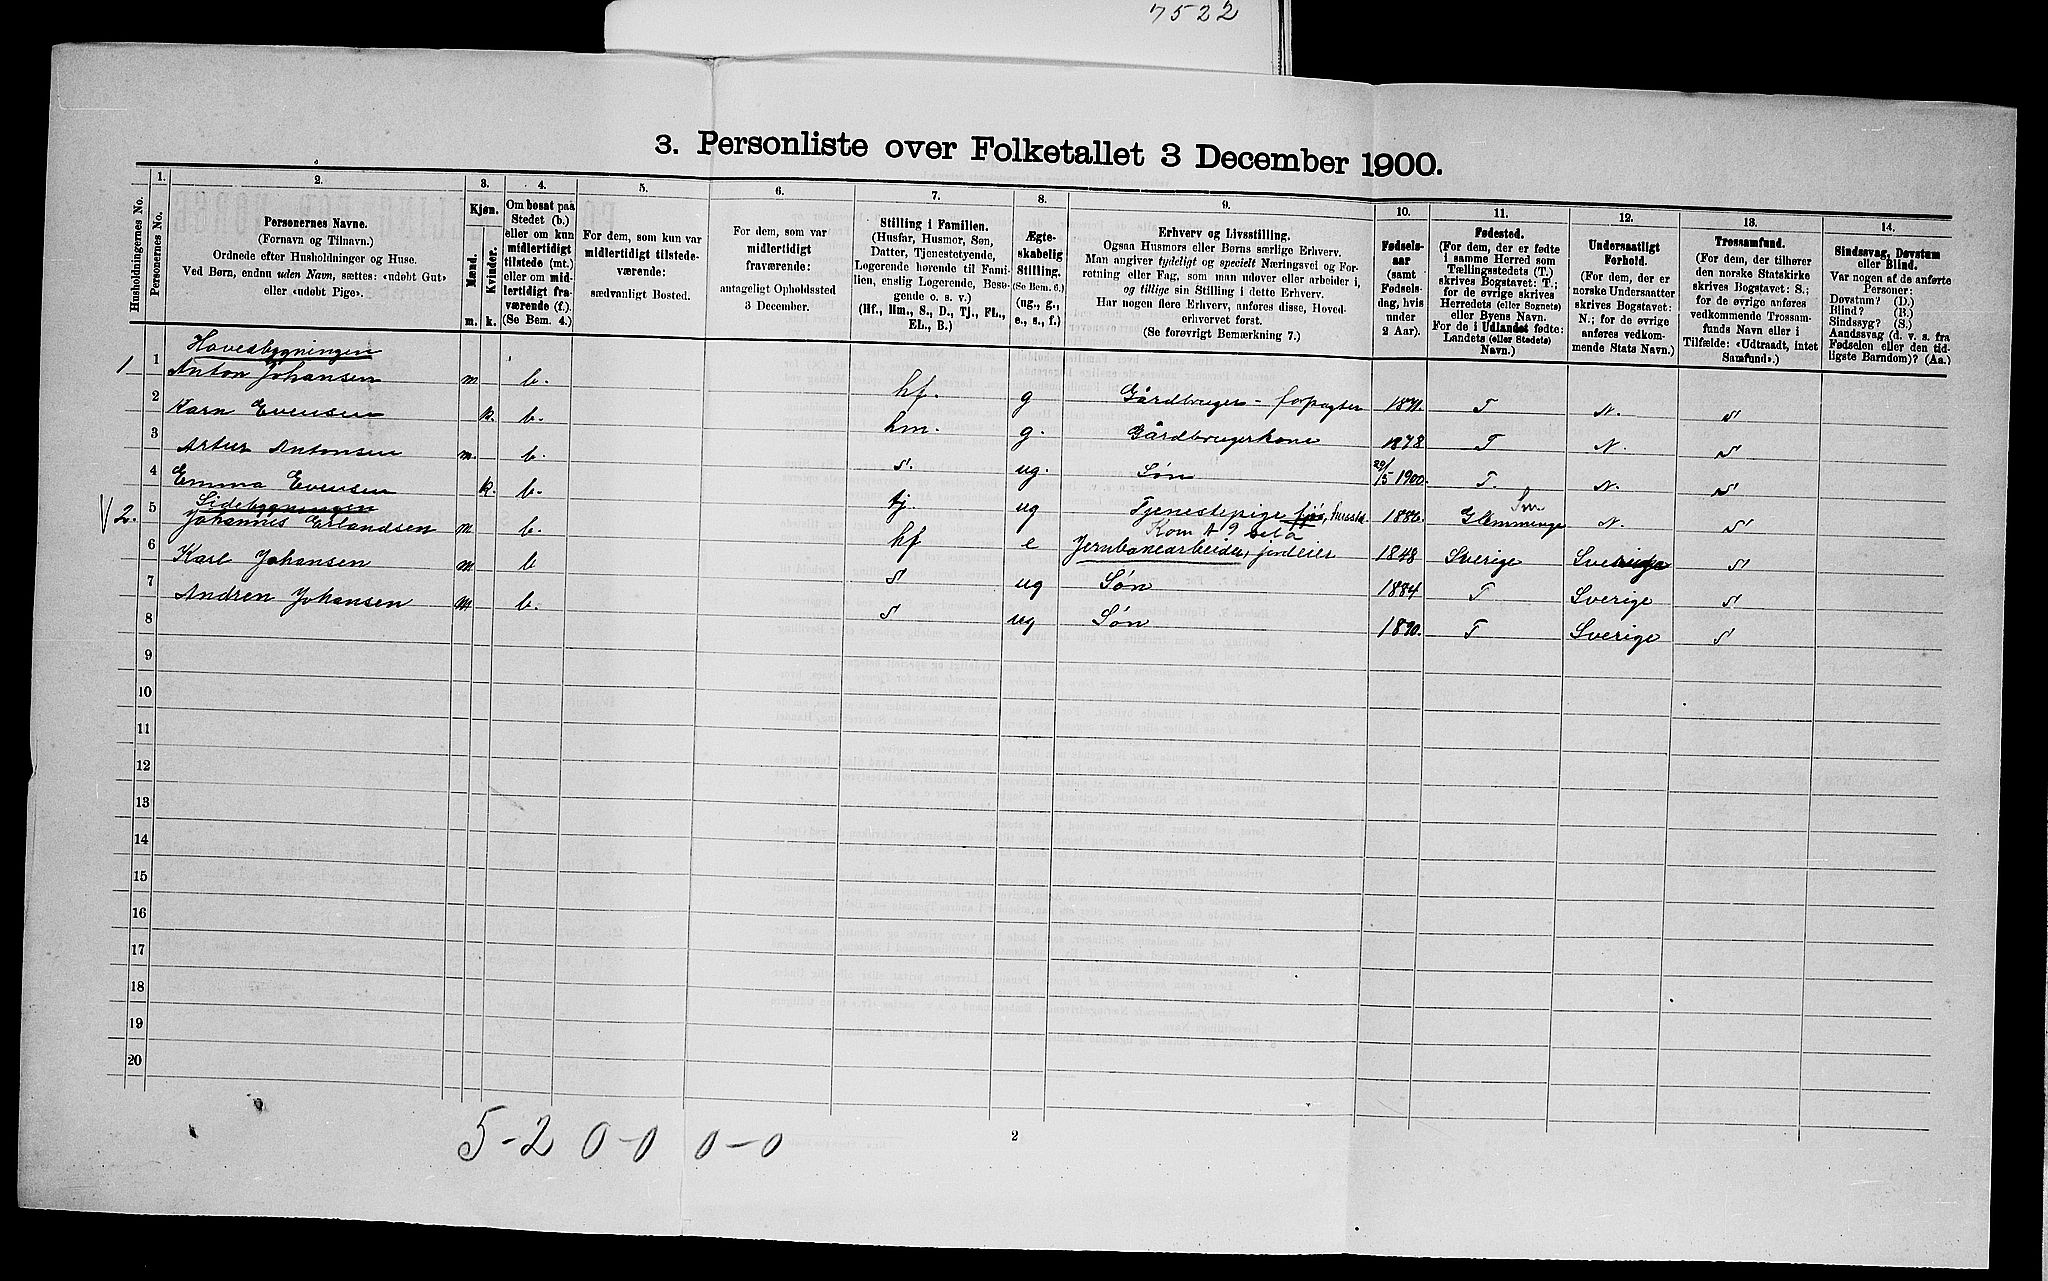 7522
3. Personliste over Folketallet 3 December 1900.
Husholdningernes No.
1.
Personernes No.
2.
Personernes Navne.
(Fornavn og Tilnavn.)
Ordnede efter Husholdninger og Huse.
Ved Børn, endnu uden Navn, sættes: «udøbt Gut»
eller «udøbt Pige».
3.
Kjøn.
Mænd.
Kvinder.
m.
k.
4.
Om bosat paa
Stedet (b.)
eller om kun
midlertidigt
tilstede (mt.)
eller om mid-
lertidigt fra-
værende (f.)
(Se Bem. 4.)
5.
For dem, som kun var
midlertidigt tilstede-
værende:
sædvanligt Bosted.
6.
For dem, som var
midlertidigt
fraværende:
antageligt Opholdssted
3 December.
7.
Stilling i Familien.
(Husfar, Husmor, Søn,
Datter, Tjenestetyende,
Logerende hørende til Fami-
lien, enslig Logerende, Besø-
gende o. s. v.)
(Hf., Hm., S., D., Tj., FL.,
EL., B.)
8.
Ægte-
skabelig
Stilling.
(Se Bem. 6.)
(ug., g.,
e., s., f.)
9.
Erhverv og Livsstilling.
Ogsaa Husmors eller Børns særlige Erhverv.
Man angiver tydeligt og specielt Næringsvei og For-
retning eller Fag, som man udøver eller arbeider i,
og tillige sin Stilling i dette Erhverv.
Har nogen flere Erhverv, anføres disse, Hoved-
erhvervet først.
(Se forøvrigt Bemærkning 7.)
10.
Fødsels-
aar
(samt
Fødsels-
dag, hvis
under
2 Aar).
11.
Fødested.
(For dem, der er fødte
i samme Herred som
Tællingsstedets (T.)
skrives Bogstavet: T.;
for de øvrige skrives
Herredets (eller Sognets)
eller Byens Navn.
For de i Udlandet fødte:
Landets (eller Stedets)
Navn.)
12.
Undersaatligt
Forhold.
(For dem, der er
norske Undersaatter
skrives Bogstavet:
N.; for de øvrige
anføres vedkom-
mende Stats Navn.)
13.
Trossamfund.
(For dem, der tilhører
den norske Statskirke
skrives Bogstavet: S.;
for de øvrige anføres
vedkommende Trossam-
funds Navn eller i
Tilfælde: «Udtraadt, intet
Samfund».)
14.
Sindssvag, Døvstum
eller Blind.
Var nogen af de anførte
Personer:
Døvstum? (D.)
Blind? (B.)
Sindssyg? (S.)
Aandssvag (d. v. s. fra
Fødselen eller den tid-
ligste Barndom)? (Aa.)
Hovedbygningen
1 1 Anton Johansen m b. hf. g Gårdbruger - forpagter 1871. T N. S
2 Karn Evensen k. b. hm. g. Gårdbrugerkone 1878 T N. S
3 Artur Antonsen m. b. s. ug. Søn 20/5 1900. T. N. S
4 Emma Evensen k. b. tj. ug Tjenestepige 1886. Glemminge N. S
Sidebygningen
2. 5 Johannes Erlandsen m b. hf e Jernbanearbeider, jordeier 1848 Sverige Sverige S
6 Karl Johansen m b s ug Søn 1884 T Sverige S
7 Andren Johansen m b. s ug Søn 1890. T Sverige S
8
9
10
11
12
13
14
15
16
17
18
19
20
5-2 0-0 0-0
2